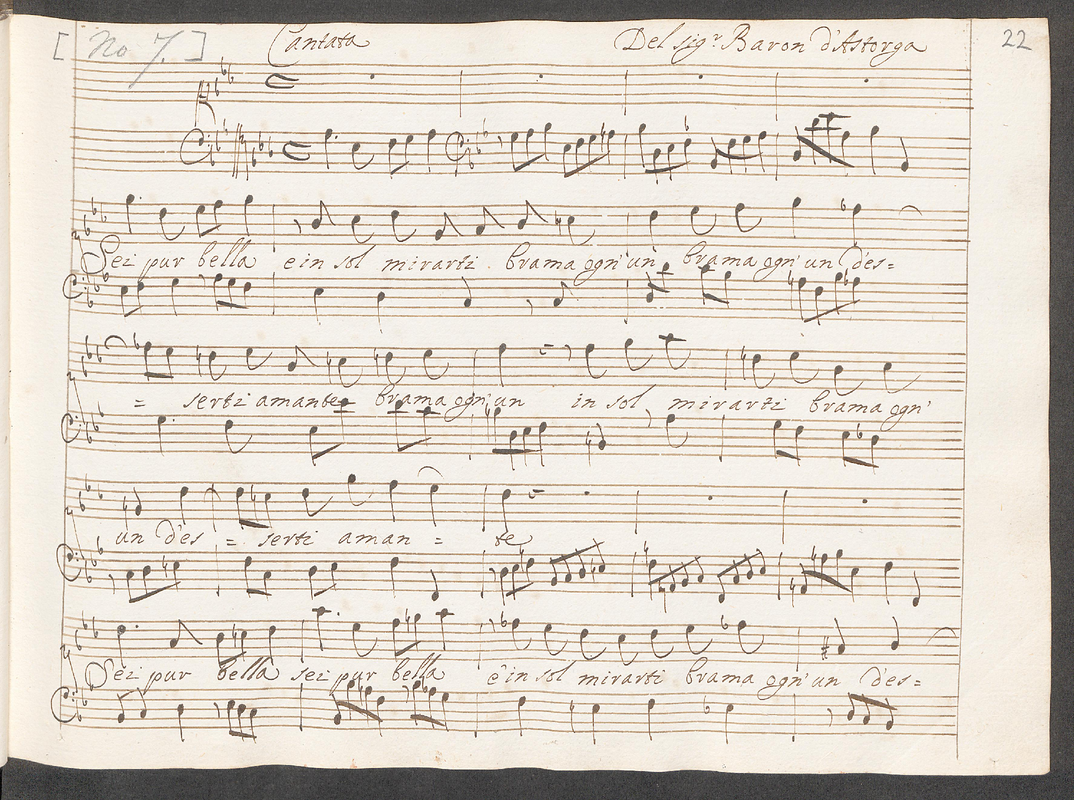 [ No 7. ] Cantata Del sig.r Baron d'Astorga 22
Sei pur bella e in sol mirarti brama ogn'un brama ogn'un d'es=
= serti amante brama ogn'un in sol mirarti brama ogn'
un d'es = serti aman = te
Sei pur bella sei pur bella e in sol mirarti brama ogn'un d'es=